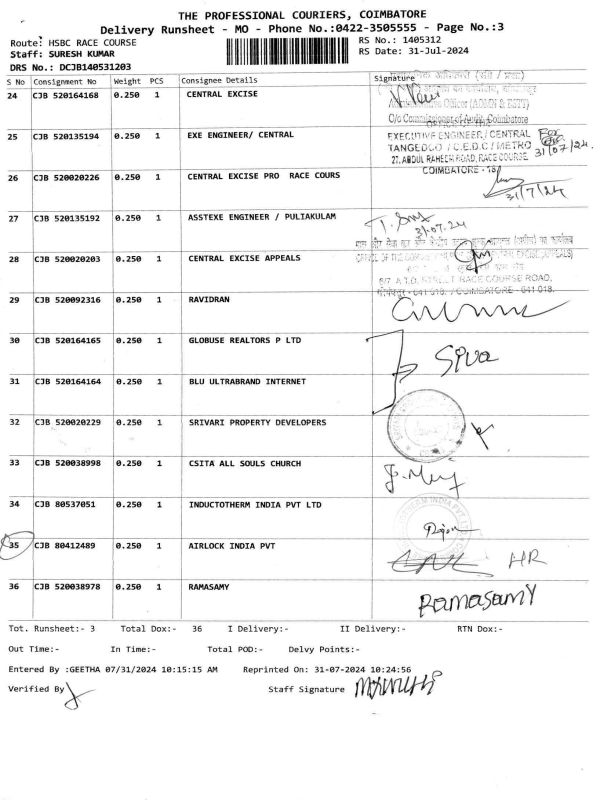 THE PROFESSIONAL COURIERS, COIMBATORE
Delivery Runsheet - MO - Phone No.:0422-3505555 - Page No.:3
Route: HSBC RACE COURSE RS No.: 1405312
Staff: SURESH KUMAR RS Date: 31-Jul-2024
DRS No.: DCJB140531203
S No Consignment No Weight PCS Consignee Details Signature
24 CJB 520164168 0.250 1 CENTRAL EXCISE
Administrative Officer (ADMN & ESTT)
O/o Commissioner of Audit, Coimbatore
25 CJB 520135194 0.250 1 EXE ENGINEER/ CENTRAL
EXECUTIVE ENGINEER / CENTRAL
TANGEDCO / C.E.D.C / METRO
27, ABDUL RAHEEM ROAD, RACE COURSE, 31/07/24.
COIMBATORE - 18
26 CJB 520020226 0.250 1 CENTRAL EXCISE PRO RACE COURS
31/7/24
27 CJB 520135192 0.250 1 ASSTEXE ENGINEER / PULIAKULAM
31.07.24
28 CJB 520020203 0.250 1 CENTRAL EXCISE APPEALS
6/7 A.T.D. STREET RACE COURSE ROAD,
COIMBATORE - 641 018.
29 CJB 520092316 0.250 1 RAVIDRAN
30 CJB 520164165 0.250 1 GLOBUSE REALTORS P LTD
Siva
31 CJB 520164164 0.250 1 BLU ULTRABRAND INTERNET
32 CJB 520020229 0.250 1 SRIVARI PROPERTY DEVELOPERS
33 CJB 520038998 0.250 1 CSITA ALL SOULS CHURCH
34 CJB 80537051 0.250 1 INDUCTOTHERM INDIA PVT LTD
35 CJB 80412489 0.250 1 AIRLOCK INDIA PVT
HR
36 CJB 520038978 0.250 1 RAMASAMY
RAMASAMY
Tot. Runsheet:- 3 Total Dox:- 36 I Delivery:- II Delivery:- RTN Dox:-
Out Time:- In Time:- Total POD:- Delvy Points:-
Entered By :GEETHA 07/31/2024 10:15:15 AM Reprinted On: 31-07-2024 10:24:56
Verified By Staff Signature